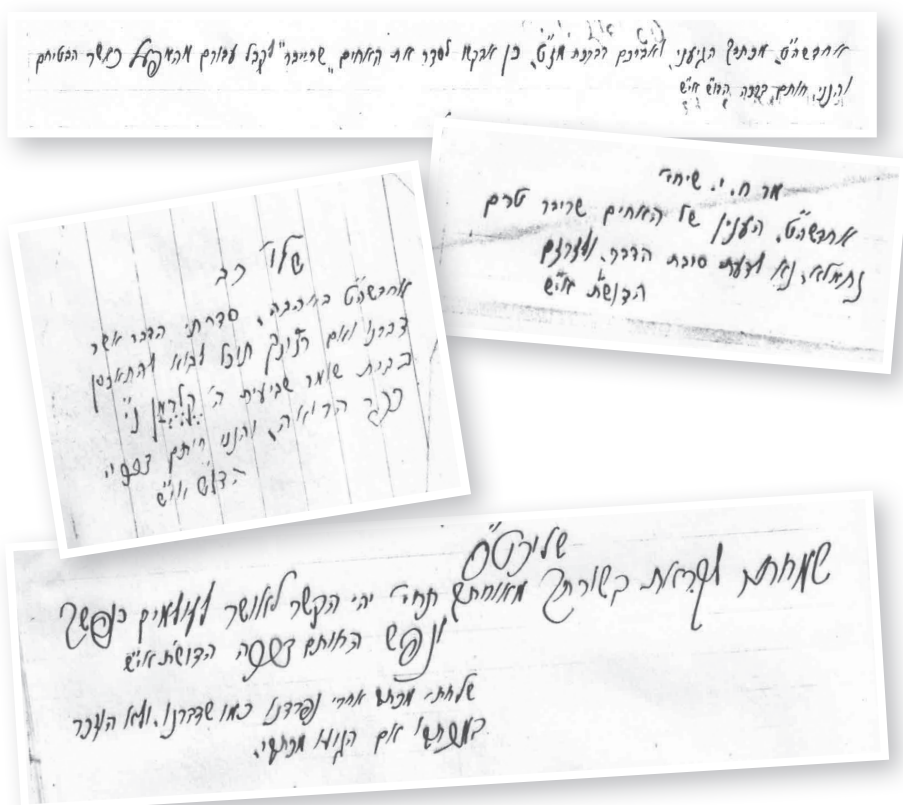 אחדשה"ט, מכתבך הגיעני, לאברכם בברכת מז"ט, כן אבקש לסדר את האחים "שרייבר" לקבל עבורם מהשכלל כאשר הבטיחם
והנני חותם בברכה הדוש איש
מר ח. י. שיחי'
אחדשה"ט, הענין של האחים שרייבר טרם
נתמלא, נא לדעת סיבת הדבר, ולזרזם
הדושת איש
שלו' רב
אחדשה"ט באהבה, סדרתי הדבר אשר
דברנו ואם רצונך תוכל לבוא להתאכסן
בבית שומר שביעית ה' קלרמן נ"י
כפר הרואה, והנני חותם בצפיה
הדו"ש איש
שליט"ס
שמחתי לקראת בשורתך מאורחתך תחי' יהי הקשר לאושר לעולמים כנפשך
ונפש החותם בצפיה הדושת איש
שלחתי מכתב אחרי נפרדנו כמו שדברנו, ולא הוזכר
במכתבו אם הגיעו מכתבי.